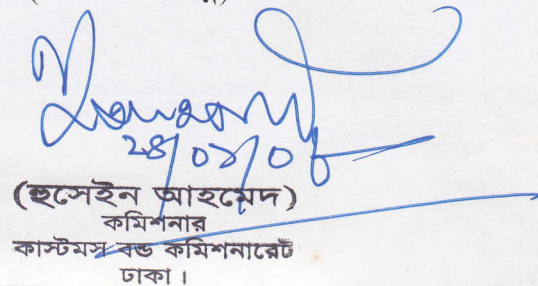 ২৪/০২/০৮
(হুসেইন আহমেদ)
কমিশনার
কাস্টমস বন্ড কমিশনারেট
ঢাকা।